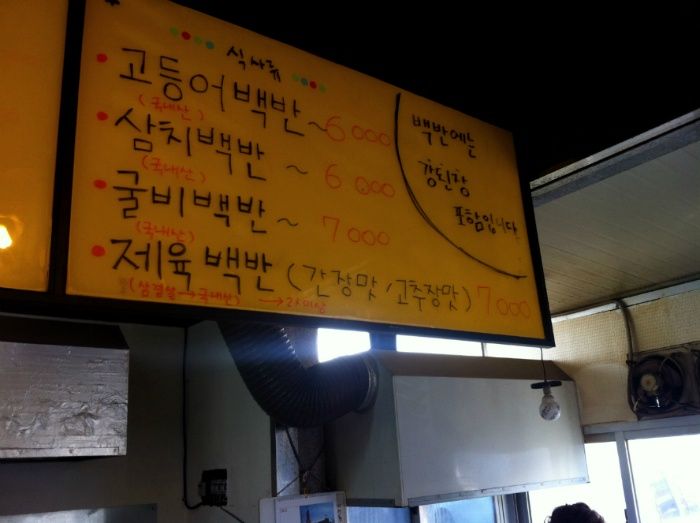 식사류
고등어백반~6000
(국내산)
삼치백반 ~ 6000
(국내산)
굴비백반 ~ 7000
(국내산)
제육백반 (간장맛/고추장맛) 7000
(삼겹살→국내산) →2人이상
백반에는
강된장
포함입니다